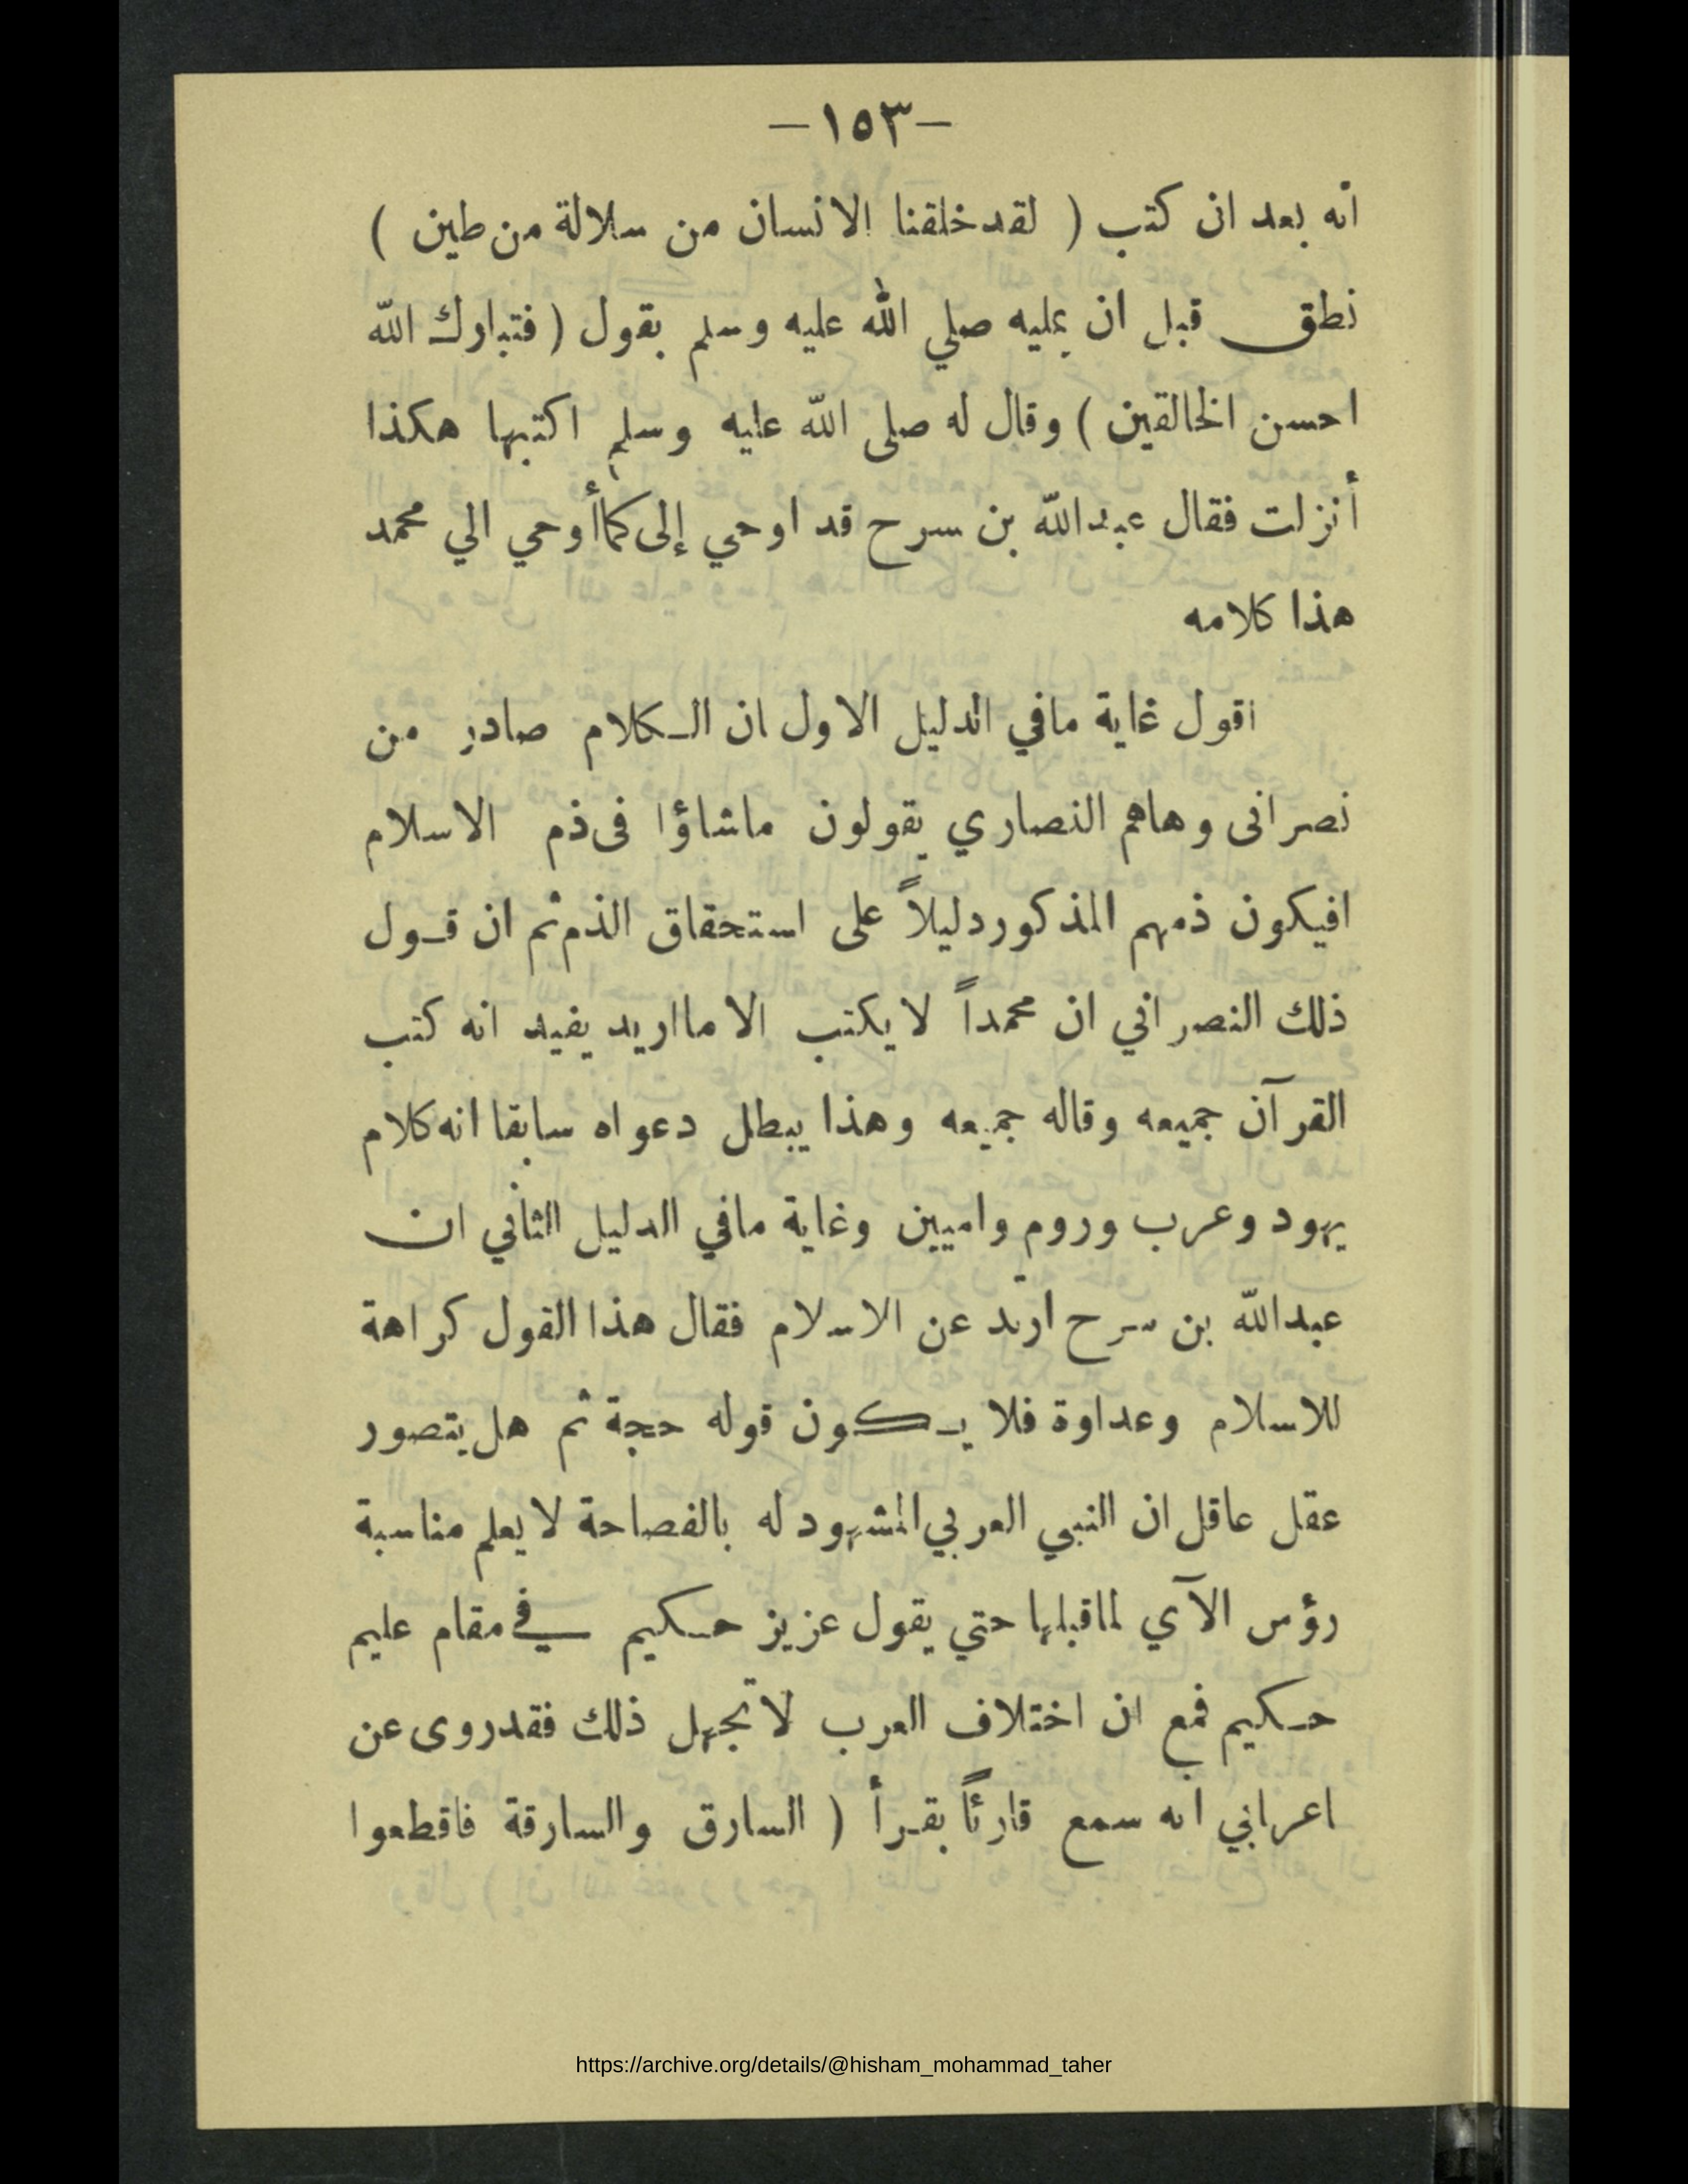 -١٥٣-
انه بعد ان كتب ( لقد خلقنا الانسان من سلالة من طين )
نطق قبل ان يمليه صلي الله عليه وسلم بقول ( فتبارك الله
احسن الخالقين ) وقال له صلى الله عليه وسلم اكتبها هكذا
أنزلت فقال عبدالله بن سرح قد اوحي إلى كما أوحي الي محمد
هذا كلامه
اقول غاية مافي الدليل الاول ان الكلام صادر من
نصرانى وهاهم النصاري يقولون ماشاؤا فى ذم الاسلام
افيكون ذمهم المذكور دليلاً على استحقاق الذم ثم ان قول
ذلك النصراني ان محمداً لا يكتب الا ما اريد يفيد انه كتب
القرآن جميعه وقاله جميعه وهذا يبطل دعواه سابقا انه كلام
يهود وعرب وروم واميين وغاية مافي الدليل الثاني ان
عبدالله بن سرح ارتد عن الاسلام فقال هذا القول كراهة
للاسلام وعداوة فلا يكون قوله حجة ثم هل يتصور
عقل عاقل ان النبي العربي المشهود له بالفصاحة لا يعلم مناسبة
رؤس الآي لما قبلها حتي يقول عزيز حكيم في مقام عليم
حكيم فمع ان اختلاف العرب لا تجهل ذلك فقد روى عن
اعرابي انه سمع قارئاً يقرأ ( السارق والسارقة فاقطعوا
https://archive.org/details/@hisham_mohammad_taher